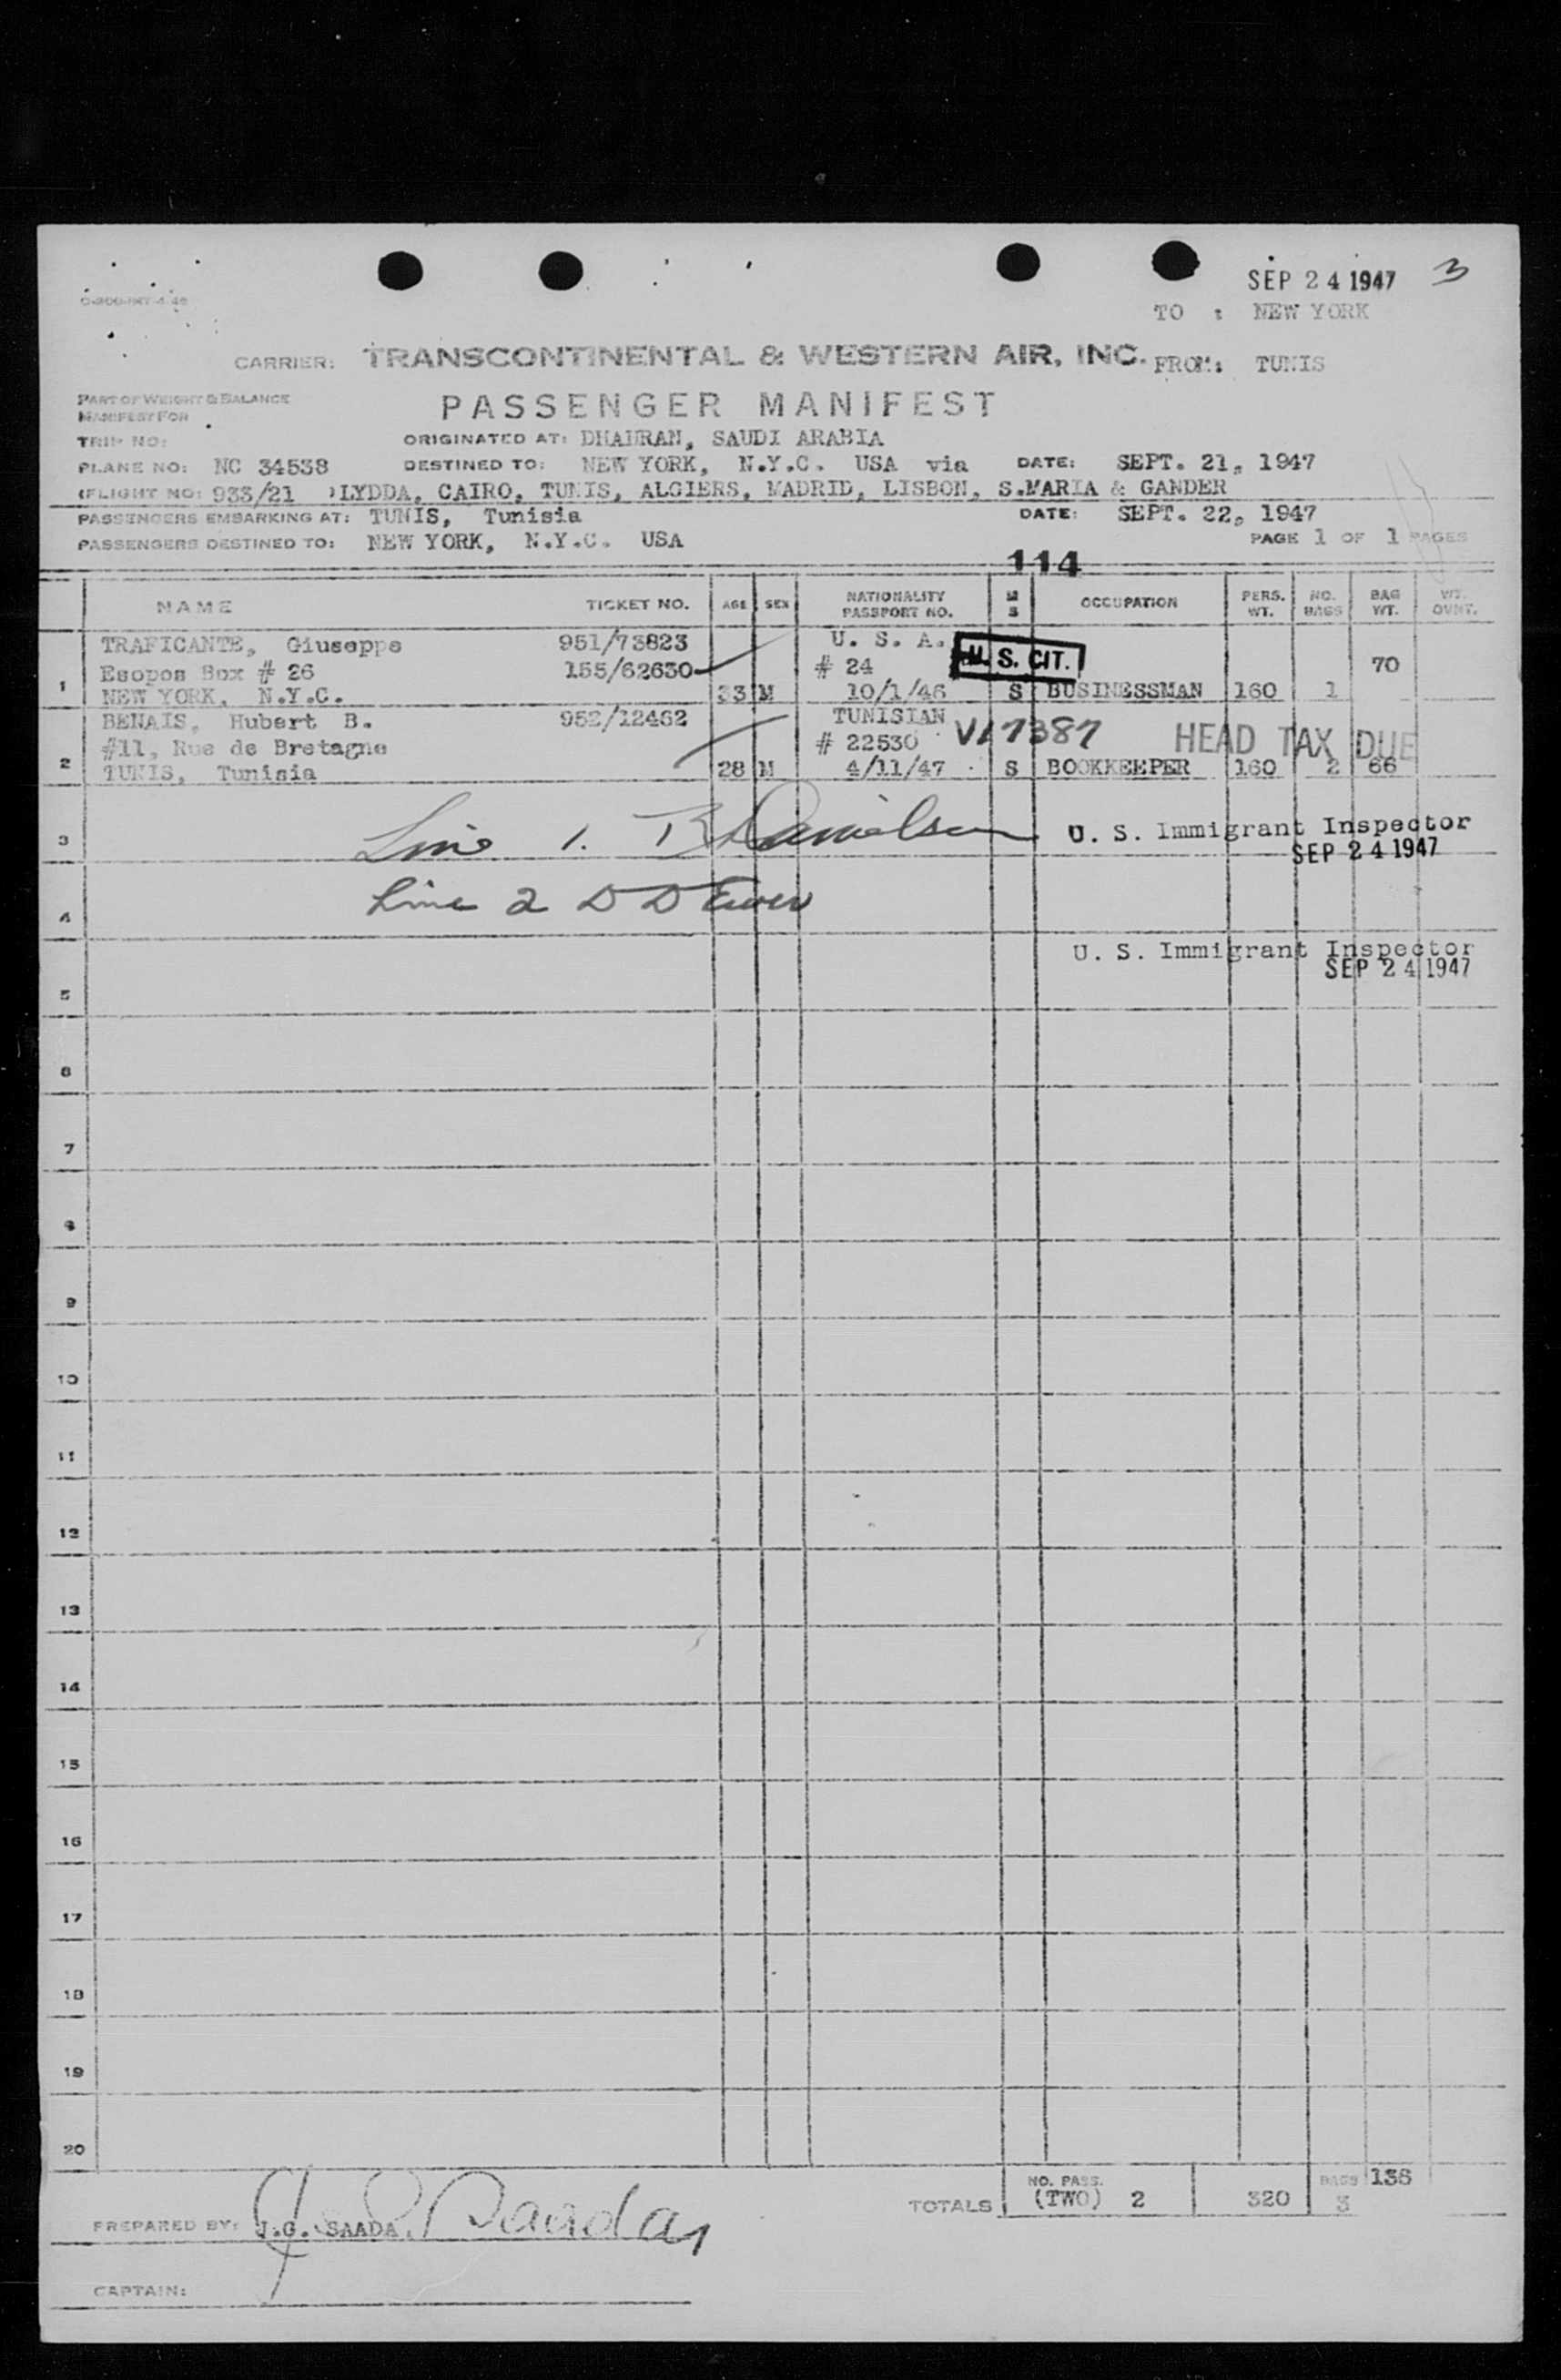 SEP 24 1947 3
C-300-INT-4-46
TO : NEW YORK
CARRIER: TRANSCONTINENTAL & WESTERN AIR, INC. FROM: TUNIS
PART OF WEIGHT & BALANCE
MANIFEST FOR
PASSENGER MANIFEST
TRIP NO:
ORIGINATED AT: DHAHRAN, SAUDI ARABIA
PLANE NO: NC 34538 DESTINED TO: NEW YORK, N.Y.C. USA via DATE: SEPT. 21, 1947
(FLIGHT NO: 933/21 )LYDDA, CAIRO, TUNIS, ALGIERS, MADRID, LISBON, S.MARIA & GANDER
PASSENGERS EMBARKING AT: TUNIS, Tunisia DATE: SEPT. 22, 1947
PASSENGERS DESTINED TO: NEW YORK, N.Y.C. USA PAGE 1 OF 1 PAGES
114
NAME TICKET NO. AGE SEX NATIONALITY PASSPORT NO. M S OCCUPATION PERS. WT. NO. BAGS BAG WT. WT. OVNT.
TRAFICANTE, Giuseppe 951/73823 U. S. A.
Esopos Box # 26 155/62630 # 24 U. S. CIT. 70
1 NEW YORK, N.Y.C. 33 M 10/1/46 S BUSINESSMAN 160 1
BENAIS, Hubert B. 952/12462 TUNISIAN
#11, Rue de Bretagne # 22530 V17387 HEAD TAX DUE
2 TUNIS, Tunisia 28 M 4/11/47 S BOOKKEEPER 160 2 66
3 Line 1. Danielson U. S. Immigrant Inspector
SEP 24 1947
4 Line 2 D D
U. S. Immigrant Inspector
SEP 24 1947
5
6
7
8
9
10
11
12
13
14
15
16
17
18
19
20
TOTALS NO. PASS. (TWO) 2 320 BAGS 3 136
PREPARED BY: J.G. SAADA. J G Saada
CAPTAIN: